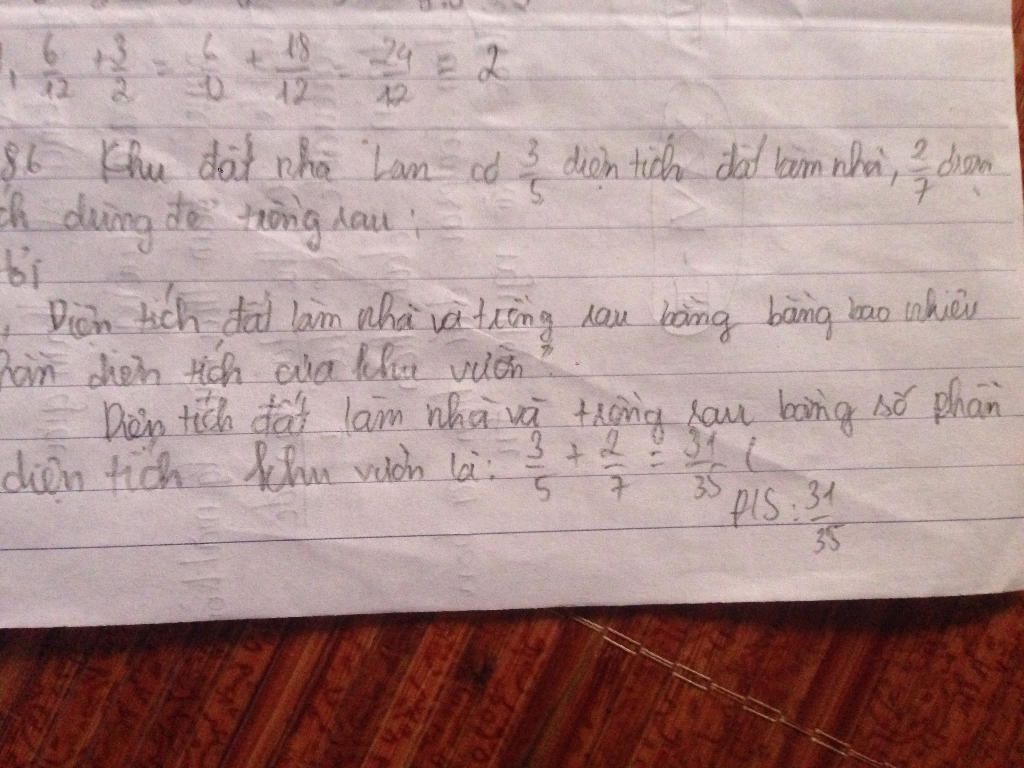 6/12 + 3/2 = 6/12 + 18/12 = 24/12 = 2
86 Khu đất nhà Lan có 3/5 diện tích đất làm nhà, 2/7 diện
ch dùng để trồng rau;
bi
, Diện tích đất làm nhà và trồng rau bằng bằng bao nhiêu
hần diện tích của khu vườn?
Diện tích đất làm nhà và trồng rau bằng số phần
diện tích khu vườn là: 3/5 + 2/7 = 31/35 (
Đ/S: 31/35